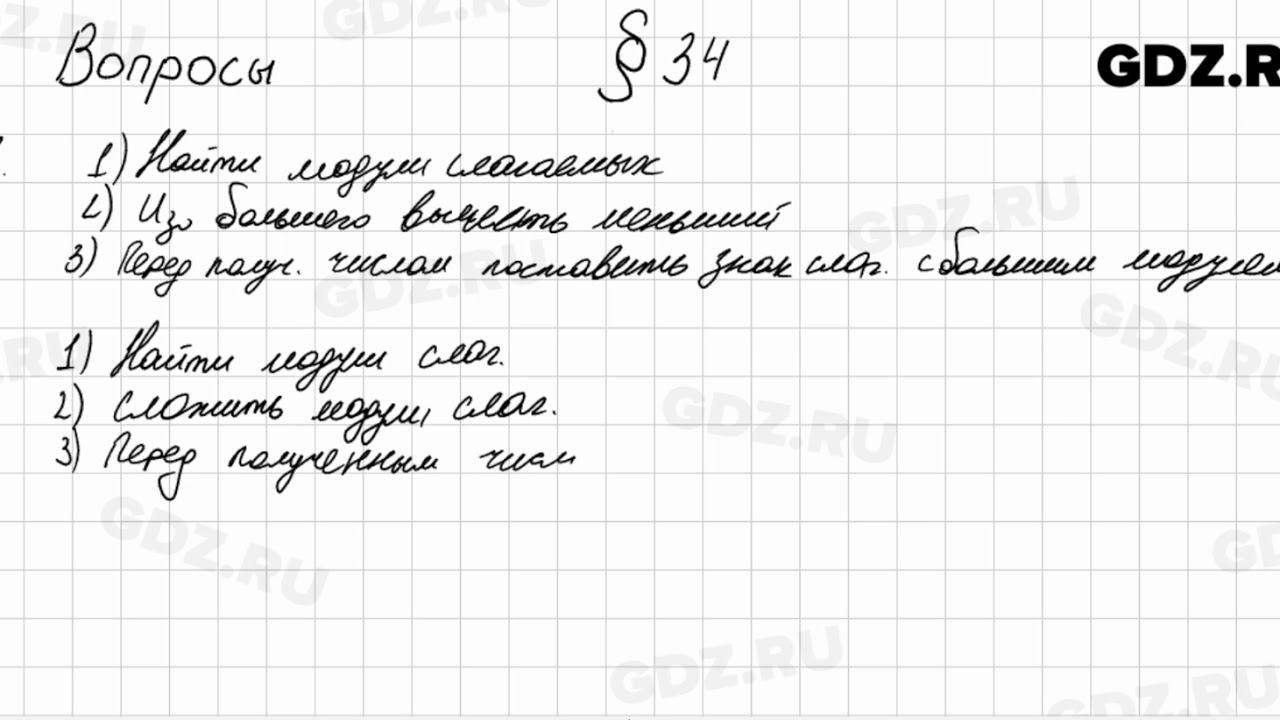 Вопросы § 34
GDZ.R
1) Найти модули слагаемых
2) Из большего вычесть меньший
3) Перед получ. числом поставить знак слаг. с большим модулем
1) Найти модули слаг.
2) Сложить модули слаг.
3) Перед полученным числ
GDZ.RU
GDZ.RU
GDZ.RU
GDZ.RU
GDZ.RU
GDZ.RU
GDZ.RU